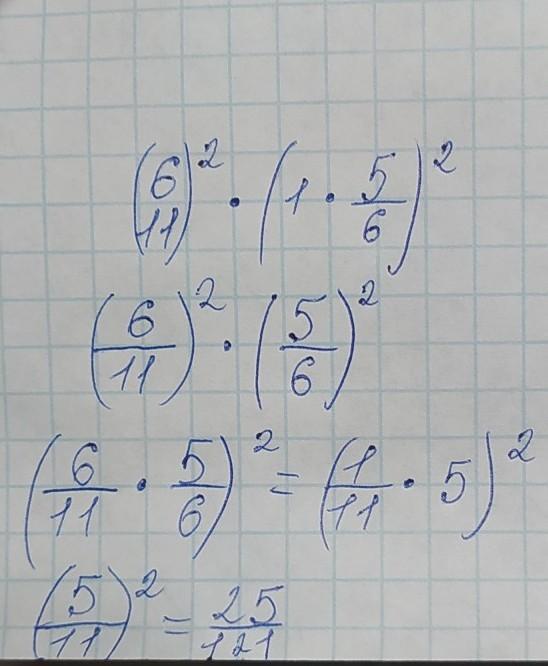 (6/11)² · (1 · 5/6)²
(6/11)² · (5/6)²
(6/11 · 5/6)² = (1/11 · 5)²
(5/11)² = 25/121